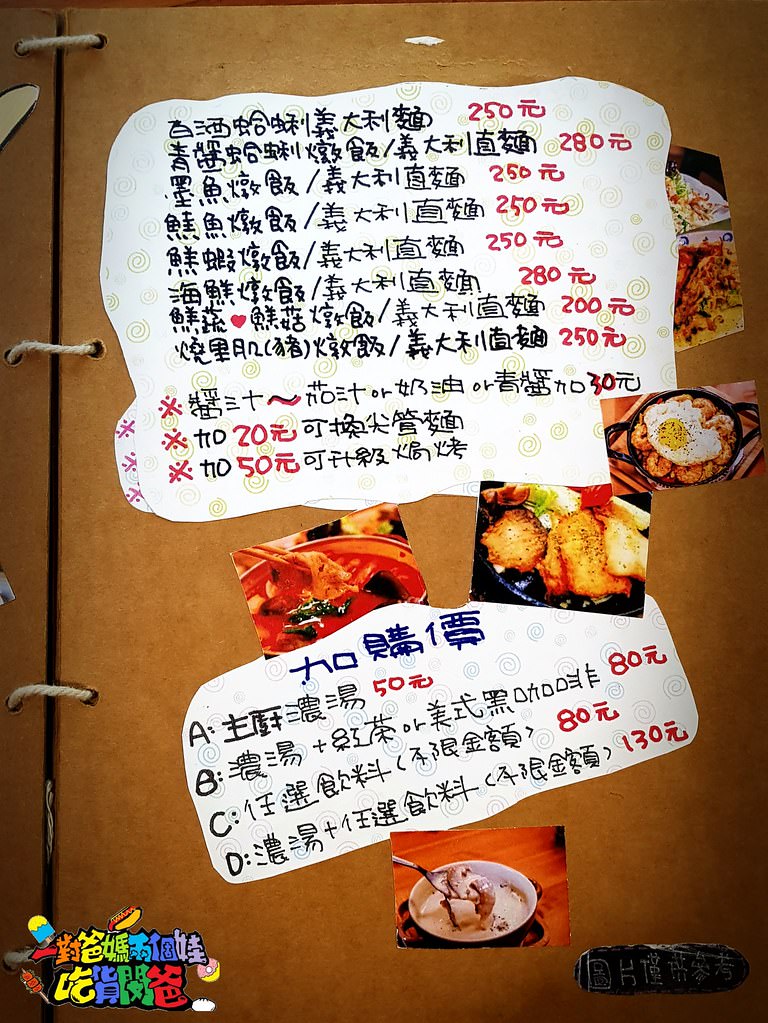 白酒蛤蜊義大利麵 250元
青醬蛤蜊燉飯/義大利直麵 280元
墨魚燉飯/義大利直麵 250元
鮭魚燉飯/義大利直麵 250元
鮮蝦燉飯/義大利直麵 250元
海鮮燉飯/義大利直麵 280元
鮮蔬♥鮮菇燉飯/義大利直麵 200元
燒里肌(豬)燉飯/義大利直麵 250元
※醬汁～茄汁or奶油or青醬加30元
※加20元可換尖管麵
※加50元可升級焗烤
加購價
A:主廚濃湯 50元
B:濃湯+紅茶or美式黑咖啡 80元
C:任選飲料(不限金額) 80元
D:濃湯+任選飲料(不限金額) 130元
一對爸媽兩個娃
吃貨闆爸
圖片僅供參考